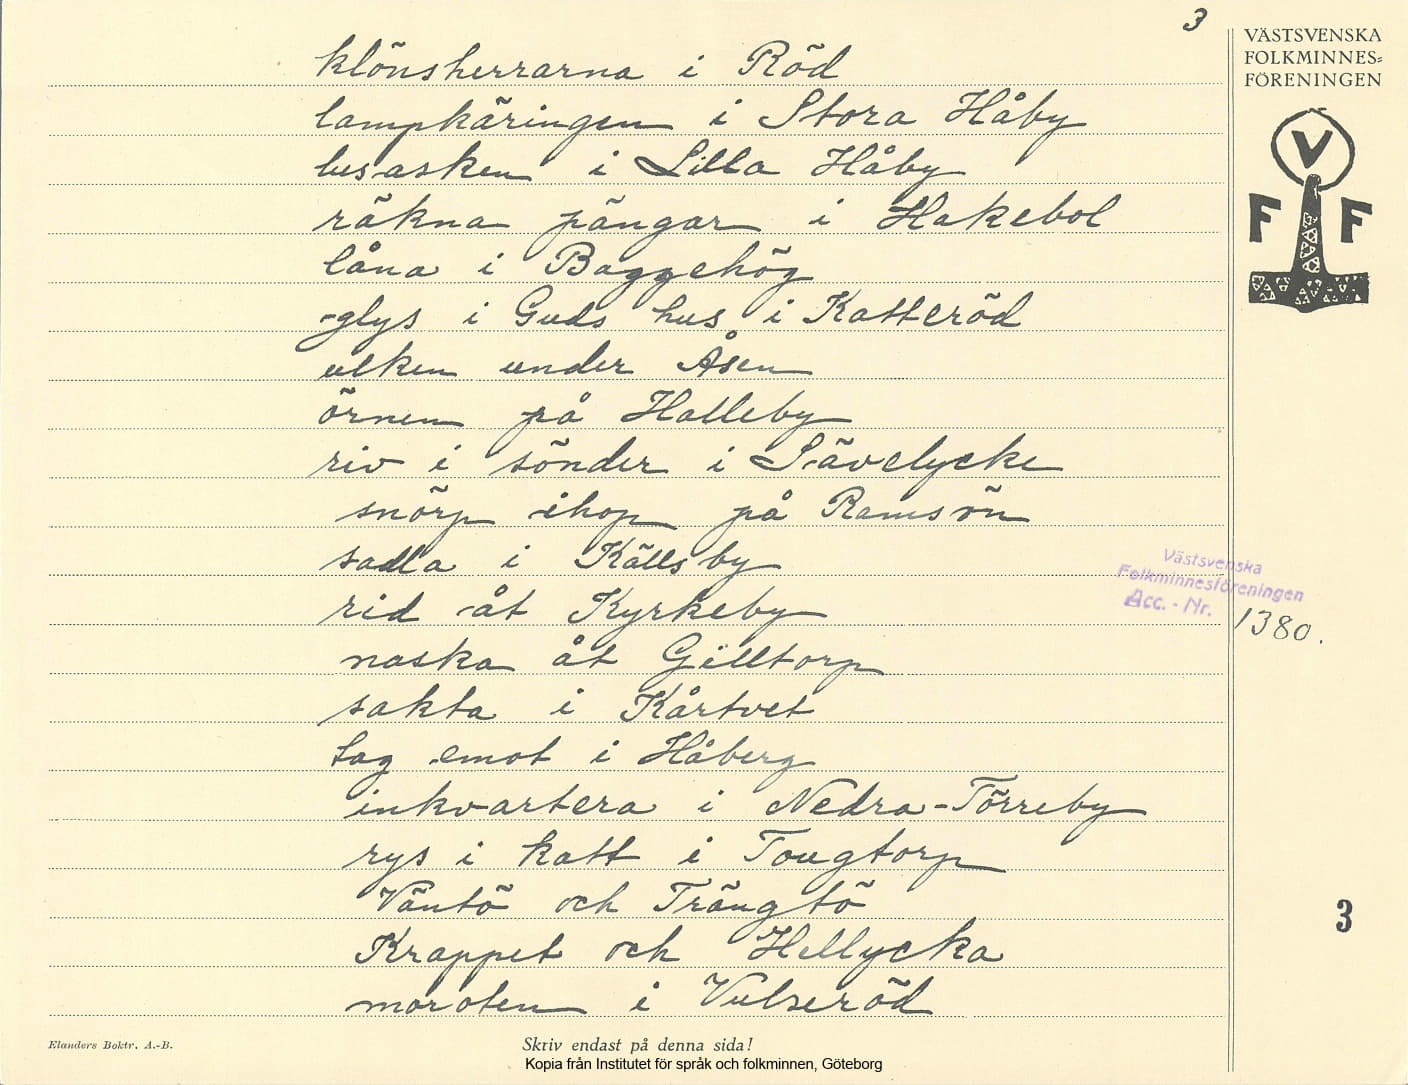 3
VÄSTSVENSKA
FOLKMINNES=
FÖRENINGEN
V
F F
klönsherrarna i Röd
lampkäringen i Stora Håby
lusasken i Lilla Håby
räkna pängar i Hakebol
låna i Baggehög
-glys i Guds hus i Katteröd
ulken under Åsen
örnen på Halleby
riv i sönder i Sävelycke
snörp ihop på Ramsön
sadla i Källsby
rid åt Kyrkeby
naska åt Gilltorp
sakta i Kårtvet
tag emot i Håberg
inkvartera i Nedra-Törreby
rys i katt i Tougtorp
Väntö och Trängtö
Krappet och Hellycka
moroten i Vulseröd
Västsvenska
Folkminnesföreningen
Acc. - Nr. 1380.
3
Elanders Boktr. A.-B.
Skriv endast på denna sida!
Kopia från Institutet för språk och folkminnen, Göteborg